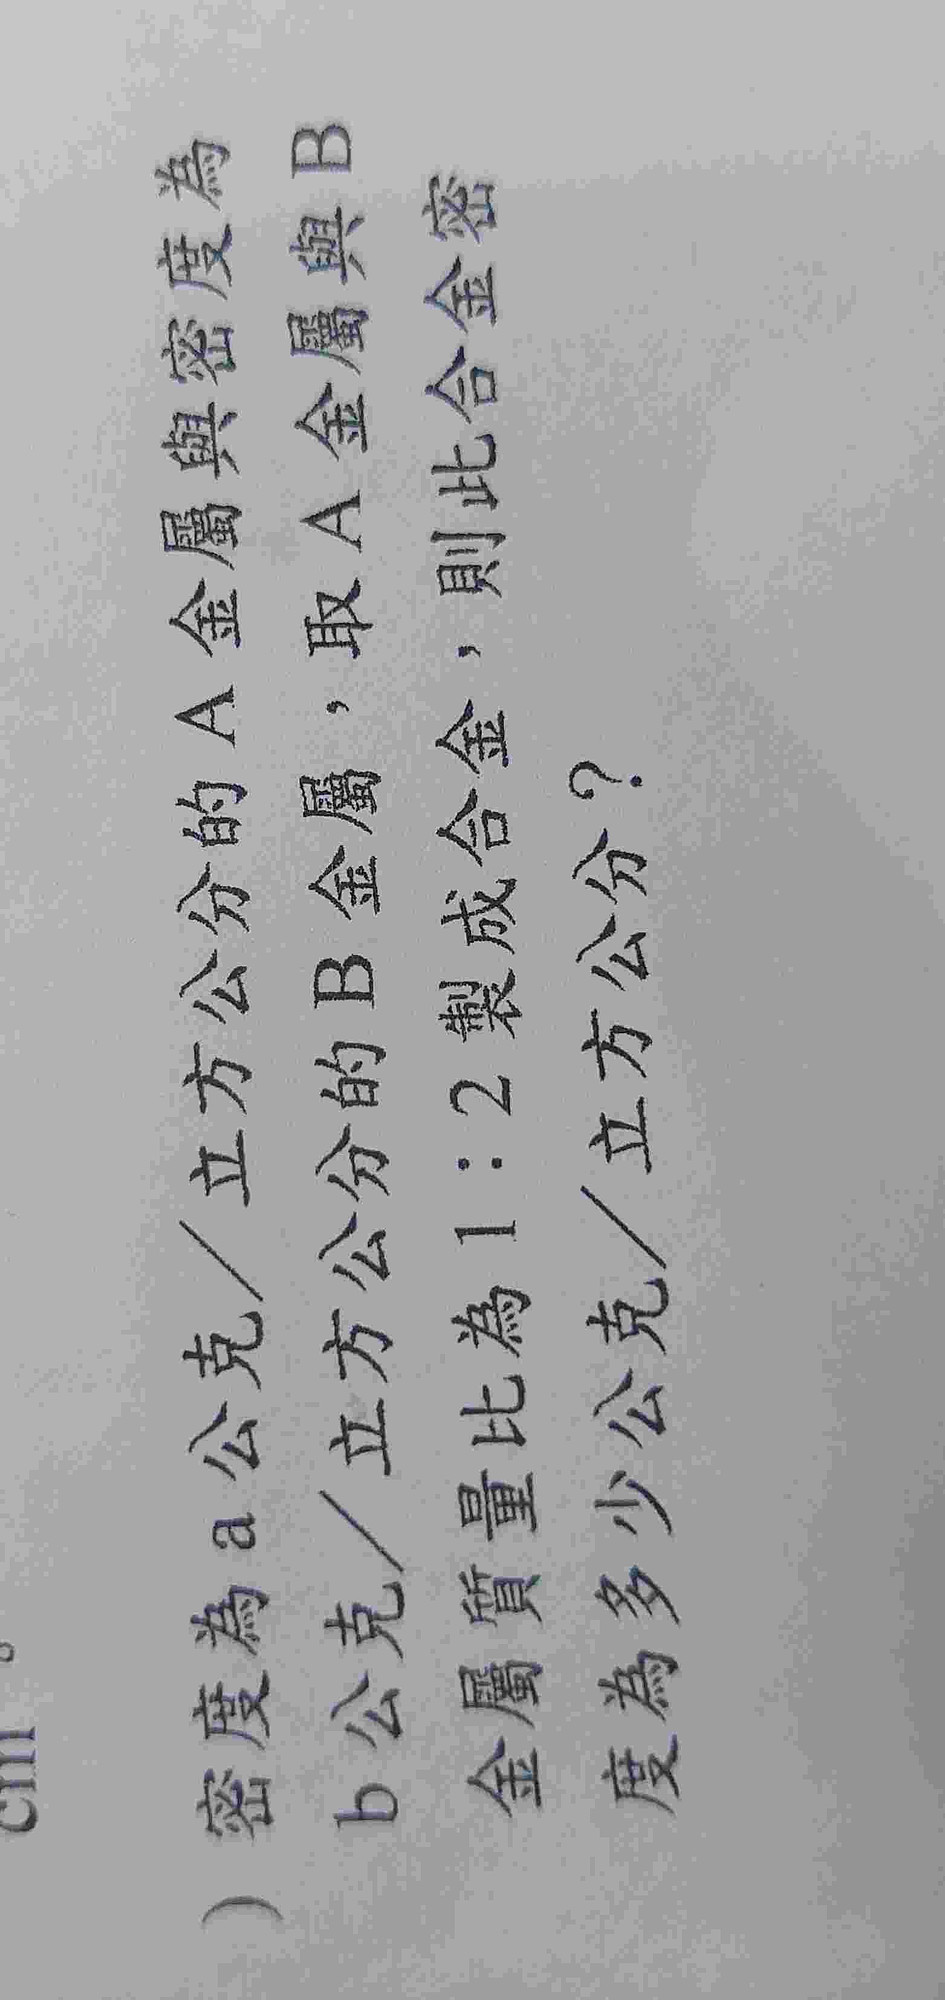 cm
)密度為a公克/立方公分的A金屬與密度為
b公克/立方公分的B金屬,取A金屬與B
金屬質量比為1:2製成合金,則此合金密
度為多少公克/立方公分?